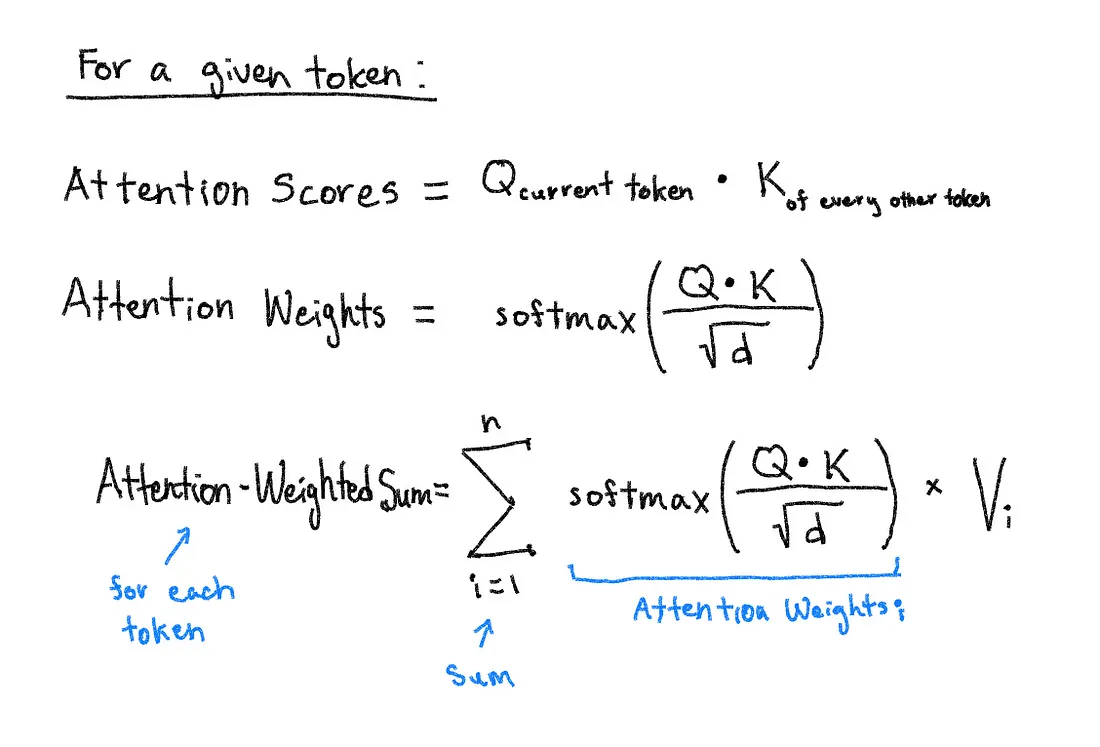 For a given token:
Attention Scores = Q current token · K of every other token
Attention Weights = softmax(Q·K / √d)
n
Attention-Weighted Sum = ∑ softmax(Q·K / √d) × Vi
i=1
for each
token
Sum
Attention Weights i